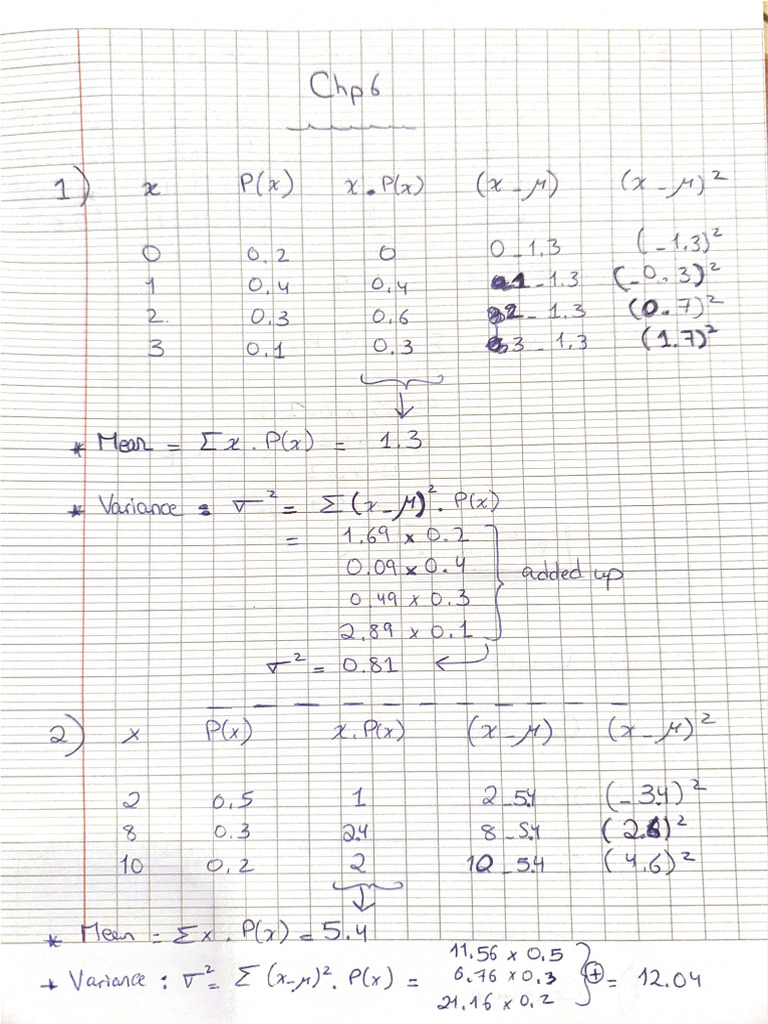 Chp 6
1) x P(x) x.P(x) (x-μ) (x-μ)²
0 0.2 0 0-1.3 (-1.3)²
1 0.4 0.4 1-1.3 (-0.3)²
2 0.3 0.6 2-1.3 (0.7)²
3 0.1 0.3 3-1.3 (1.7)²
* Mean = Σx.P(x) = 1.3
* Variance : σ² = Σ(x-μ)².P(x)
= 1.69 x 0.2
0.09 x 0.4
0.49 x 0.3
2.89 x 0.1
added up
σ² = 0.81
2) x P(x) x.P(x) (x-μ) (x-μ)²
2 0.5 1 2-5.4 (-3.4)²
8 0.3 2.4 8-5.4 (2.6)²
10 0.2 2 10-5.4 (4.6)²
* Mean = Σx.P(x) = 5.4
* Variance : σ² = Σ(x-μ)².P(x) =
11.56 x 0.5
6.76 x 0.3
21.16 x 0.2
+ = 12.04